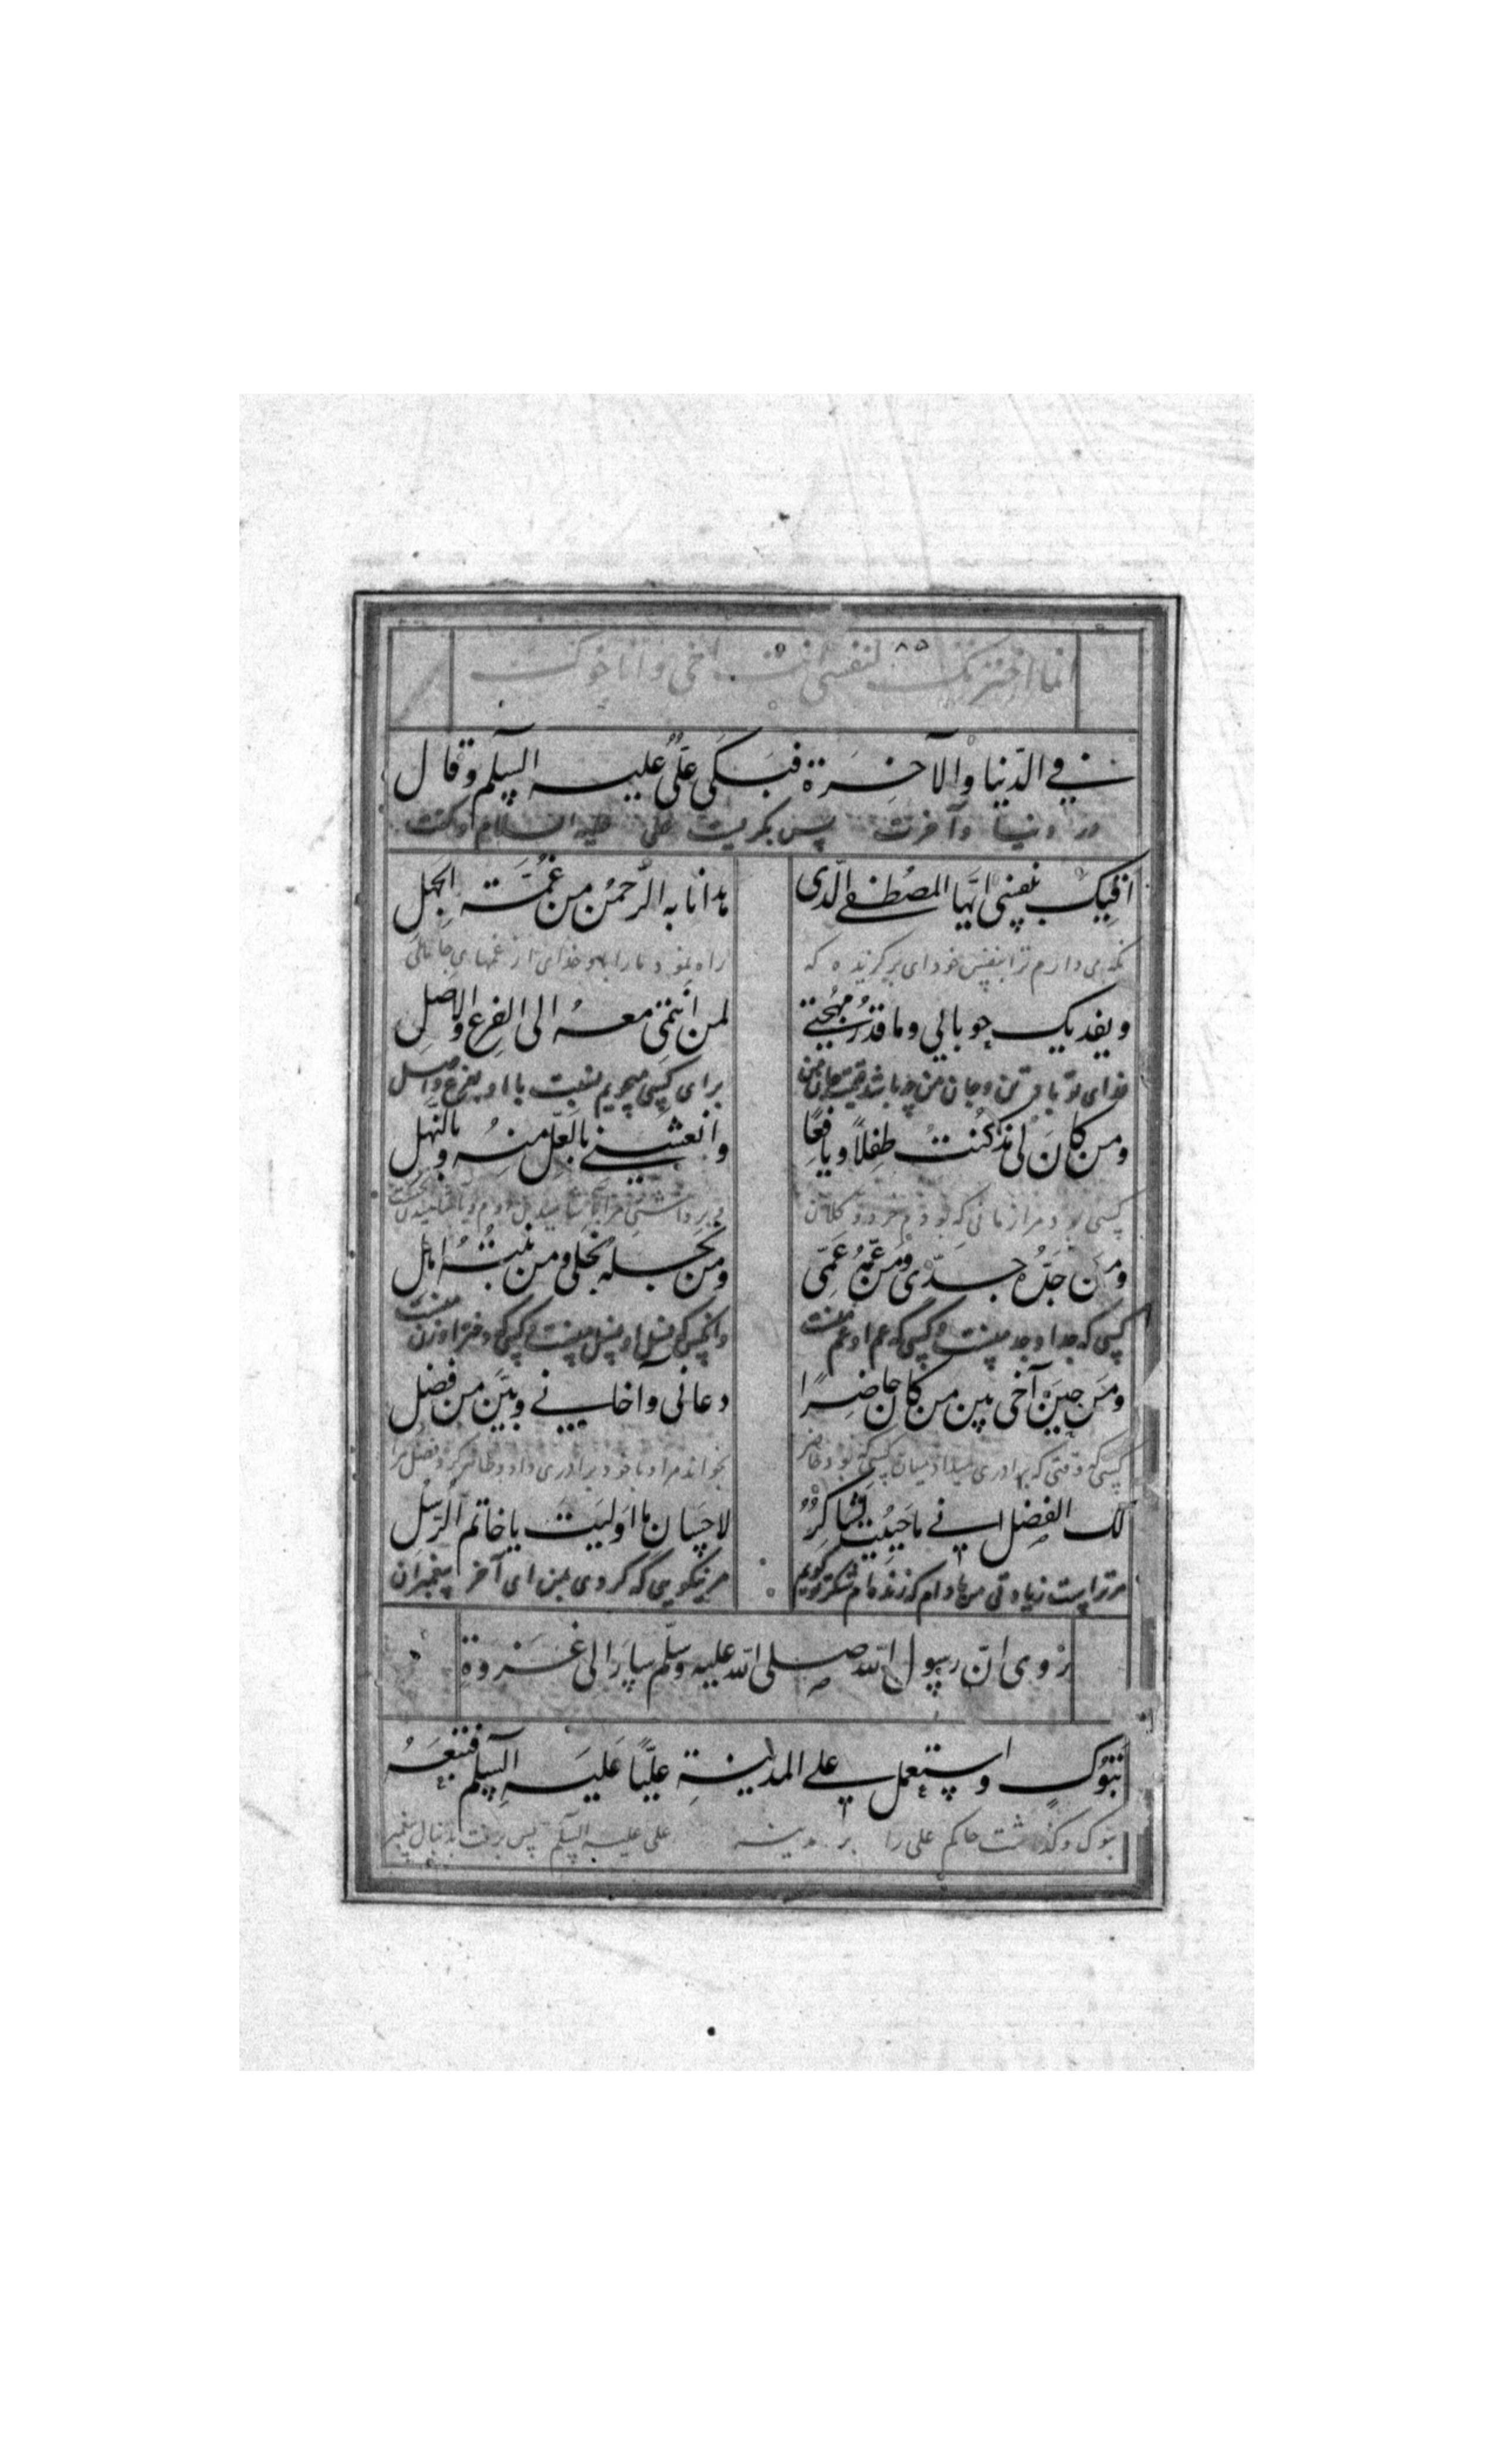 انما اخترتک لنفسی انت اخی وانا اخوک
فے الدّنیا والآخِرَة فبَکَی عَلیٌّ علیه السلم وقال
در دنیا وآخرت پس بگریست علی علیه السلام وگفت
اَقیک بنفسی ایّها المصُطفے الّذی
هدانا به الرّحمنُ من غُمَّة الجَهل
نگه می دارم ترا بنفس خود ای برگزیده که
راه نمود مارا باو خدای از غمهای جاهلی
ویفدیک حوبائی وما قدرُ مُهجتے
لمن أنتمی معهُ الی الفرعِ والاصلِ
فدای تو باد تن وجان من چه باشد قیمت جان من
برای کسی میجویم نسبت با او بفرع واصل
ومن کانَ لی مذ کُنتُ طفِلاً ویافِعًا
وانعشنے بالعَلّ منهُ وبالنّهل
کسی بود مرا از مانی که بودم خرد و کلان
ومَن جَدُّه جدّی ومَن عَمُّهُ عَمّی
ومن نجله نجلی ومن بنتُهُ اهل
کسی که جد او جد منست وکسی که عم او عم منست
وانکس که نسل او نسل منست وکسی که دختر او زن منست
ومَن حینَ آخی بین من کان حاضِرًا
دعانی وآخانے وبیَّن من فضل
کسی که وقتی که برادری میداد میان کسی که بود حاضر
بخواند مرا وبا خود برادری داد وظاهر کرد فضل مرا
لک الفضل انے ما حَییتُ لشاکِرٌ
لاحسان ما اَولیَت یا خاتم الرّسل
مر تراست زیادتی من مادام که زنده ام شکر گویم
مر نیکویی که کردی بمن ای آخر پیغمبران
رُوی انّ رسول الله صلی الله علیه وسلّم سارَ الی غَزوة
تبُوکٍ واستعمل علے المدینةِ علیًّا عَلیَه السلم فتبَعَهُ
تبوک وگذاشت حاکم علی را بر مدینه علی علیه السلم پس برفت بدنبال پیغمبر